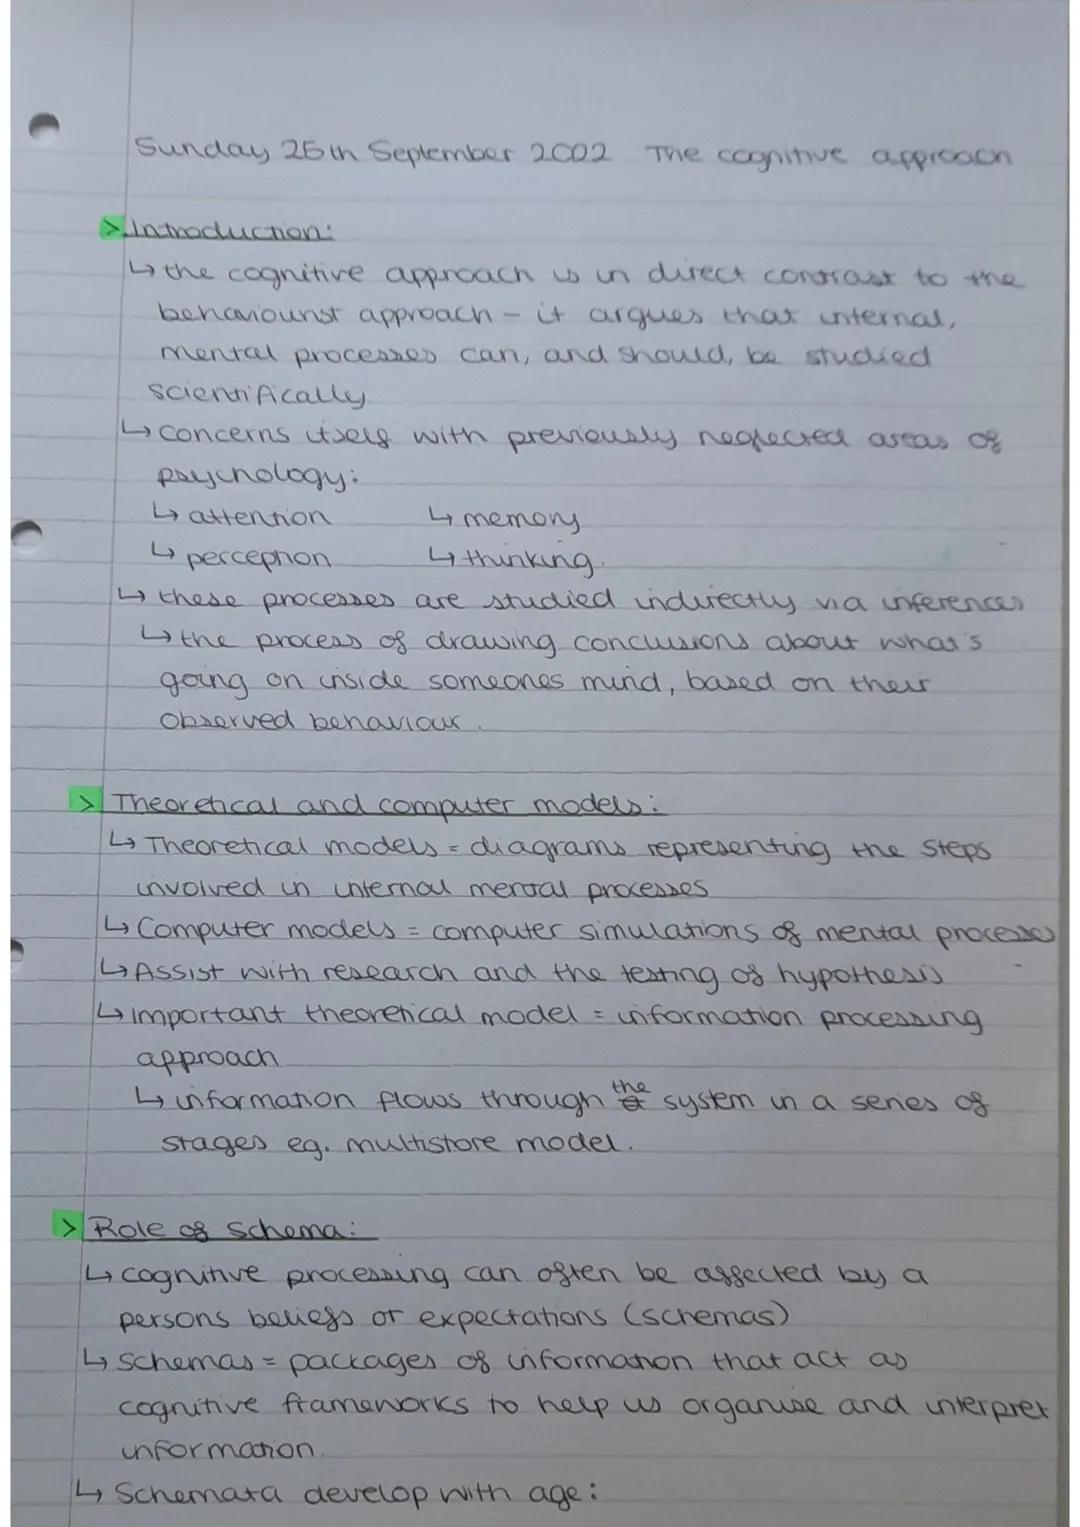 Sunday 25th September 2022 The cognitive approach
> Introduction:
↳ the cognitive approach is in direct contrast to the
behaviourist approach - it argues that internal,
mental processes can, and should, be studied
scientifically
↳ concerns itself with previously neglected areas of
psychology:
↳ attention ↳ memory
↳ perception ↳ thinking.
↳ these processes are studied indirectly via inferences
↳ the process of drawing conclusions about what's
going on inside someones mind, based on their
observed behaviour.
> Theoretical and computer models:
↳ Theoretical models = diagrams representing the steps
involved in internal mental processes
↳ Computer models = computer simulations of mental processes
↳ Assist with research and the testing of hypothesis
↳ important theoretical model = information processing
approach
↳ information flows through the system in a series of
stages eg. multistore model.
> Role of schema:
↳ cognitive processing can often be affected by a
persons beliefs or expectations (schemas)
↳ schemas = packages of information that act as
cognitive frameworks to help us organise and interpret
information.
↳ Schemata develop with age: